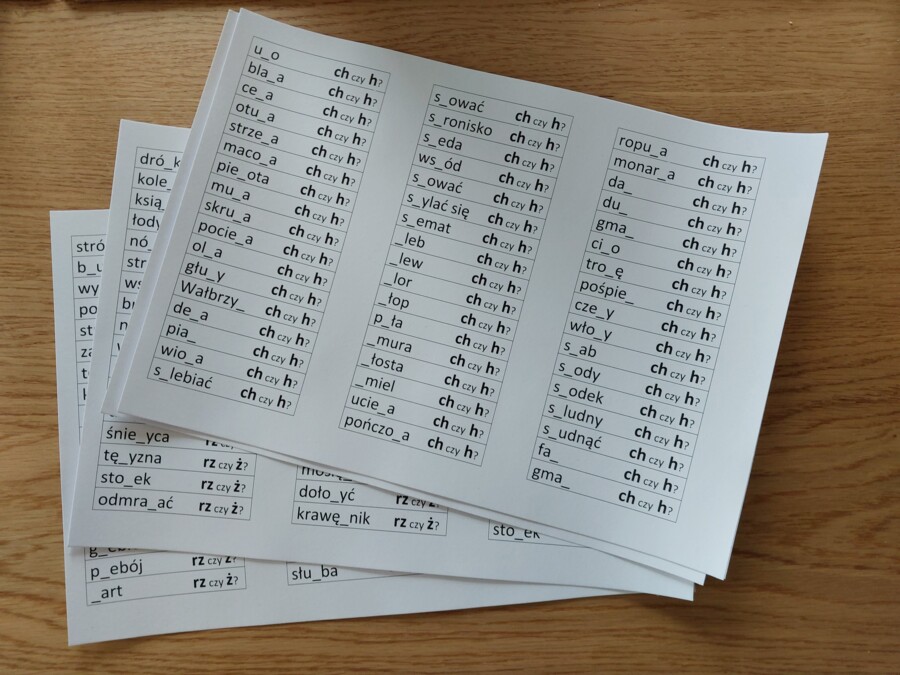 u_o ch czy h?
bla_a ch czy h?
ce_a ch czy h?
otu_a ch czy h?
strze_a ch czy h?
maco_a ch czy h?
pie_ota ch czy h?
mu_a ch czy h?
skru_a ch czy h?
pocie_a ch czy h?
ol_a ch czy h?
głu_y ch czy h?
Wałbrzy_ ch czy h?
de_a ch czy h?
pia_ ch czy h?
wio_a ch czy h?
s_lebiać ch czy h?
s_ować ch czy h?
s_ronisko ch czy h?
s_eda ch czy h?
ws_ód ch czy h?
s_ować ch czy h?
s_ylać się ch czy h?
s_emat ch czy h?
_leb ch czy h?
_lew ch czy h?
_lor ch czy h?
_łop ch czy h?
p_ła ch czy h?
_mura ch czy h?
_łosta ch czy h?
_miel ch czy h?
ucie_a ch czy h?
pończo_a ch czy h?
ropu_a ch czy h?
monar_a ch czy h?
da_ ch czy h?
du_ ch czy h?
gma_ ch czy h?
ci_o ch czy h?
tro_ę ch czy h?
pośpie_ ch czy h?
cze_y ch czy h?
wło_y ch czy h?
s_ab ch czy h?
s_ody ch czy h?
s_odek ch czy h?
s_ludny ch czy h?
s_udnąć ch czy h?
fa_ ch czy h?
gma_ ch czy h?
dró_k
kole_
ksią_
łody
nó_
str
ws
śnie_yca rz czy ż?
tę_yzna rz czy ż?
sto_ek rz czy ż?
odmra_ać rz czy ż?
doło_yć rz czy ż?
krawę_nik rz czy ż?
sto_ek
stró
b_u
wy
po
st
za
p_ebój rz czy ż?
_art rz czy ż?
słu_ba